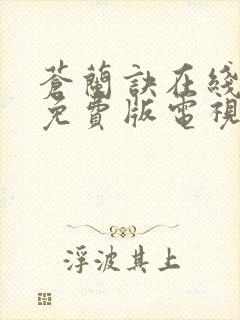 蒼蘭訣在綫
免費版電視
浮波其上